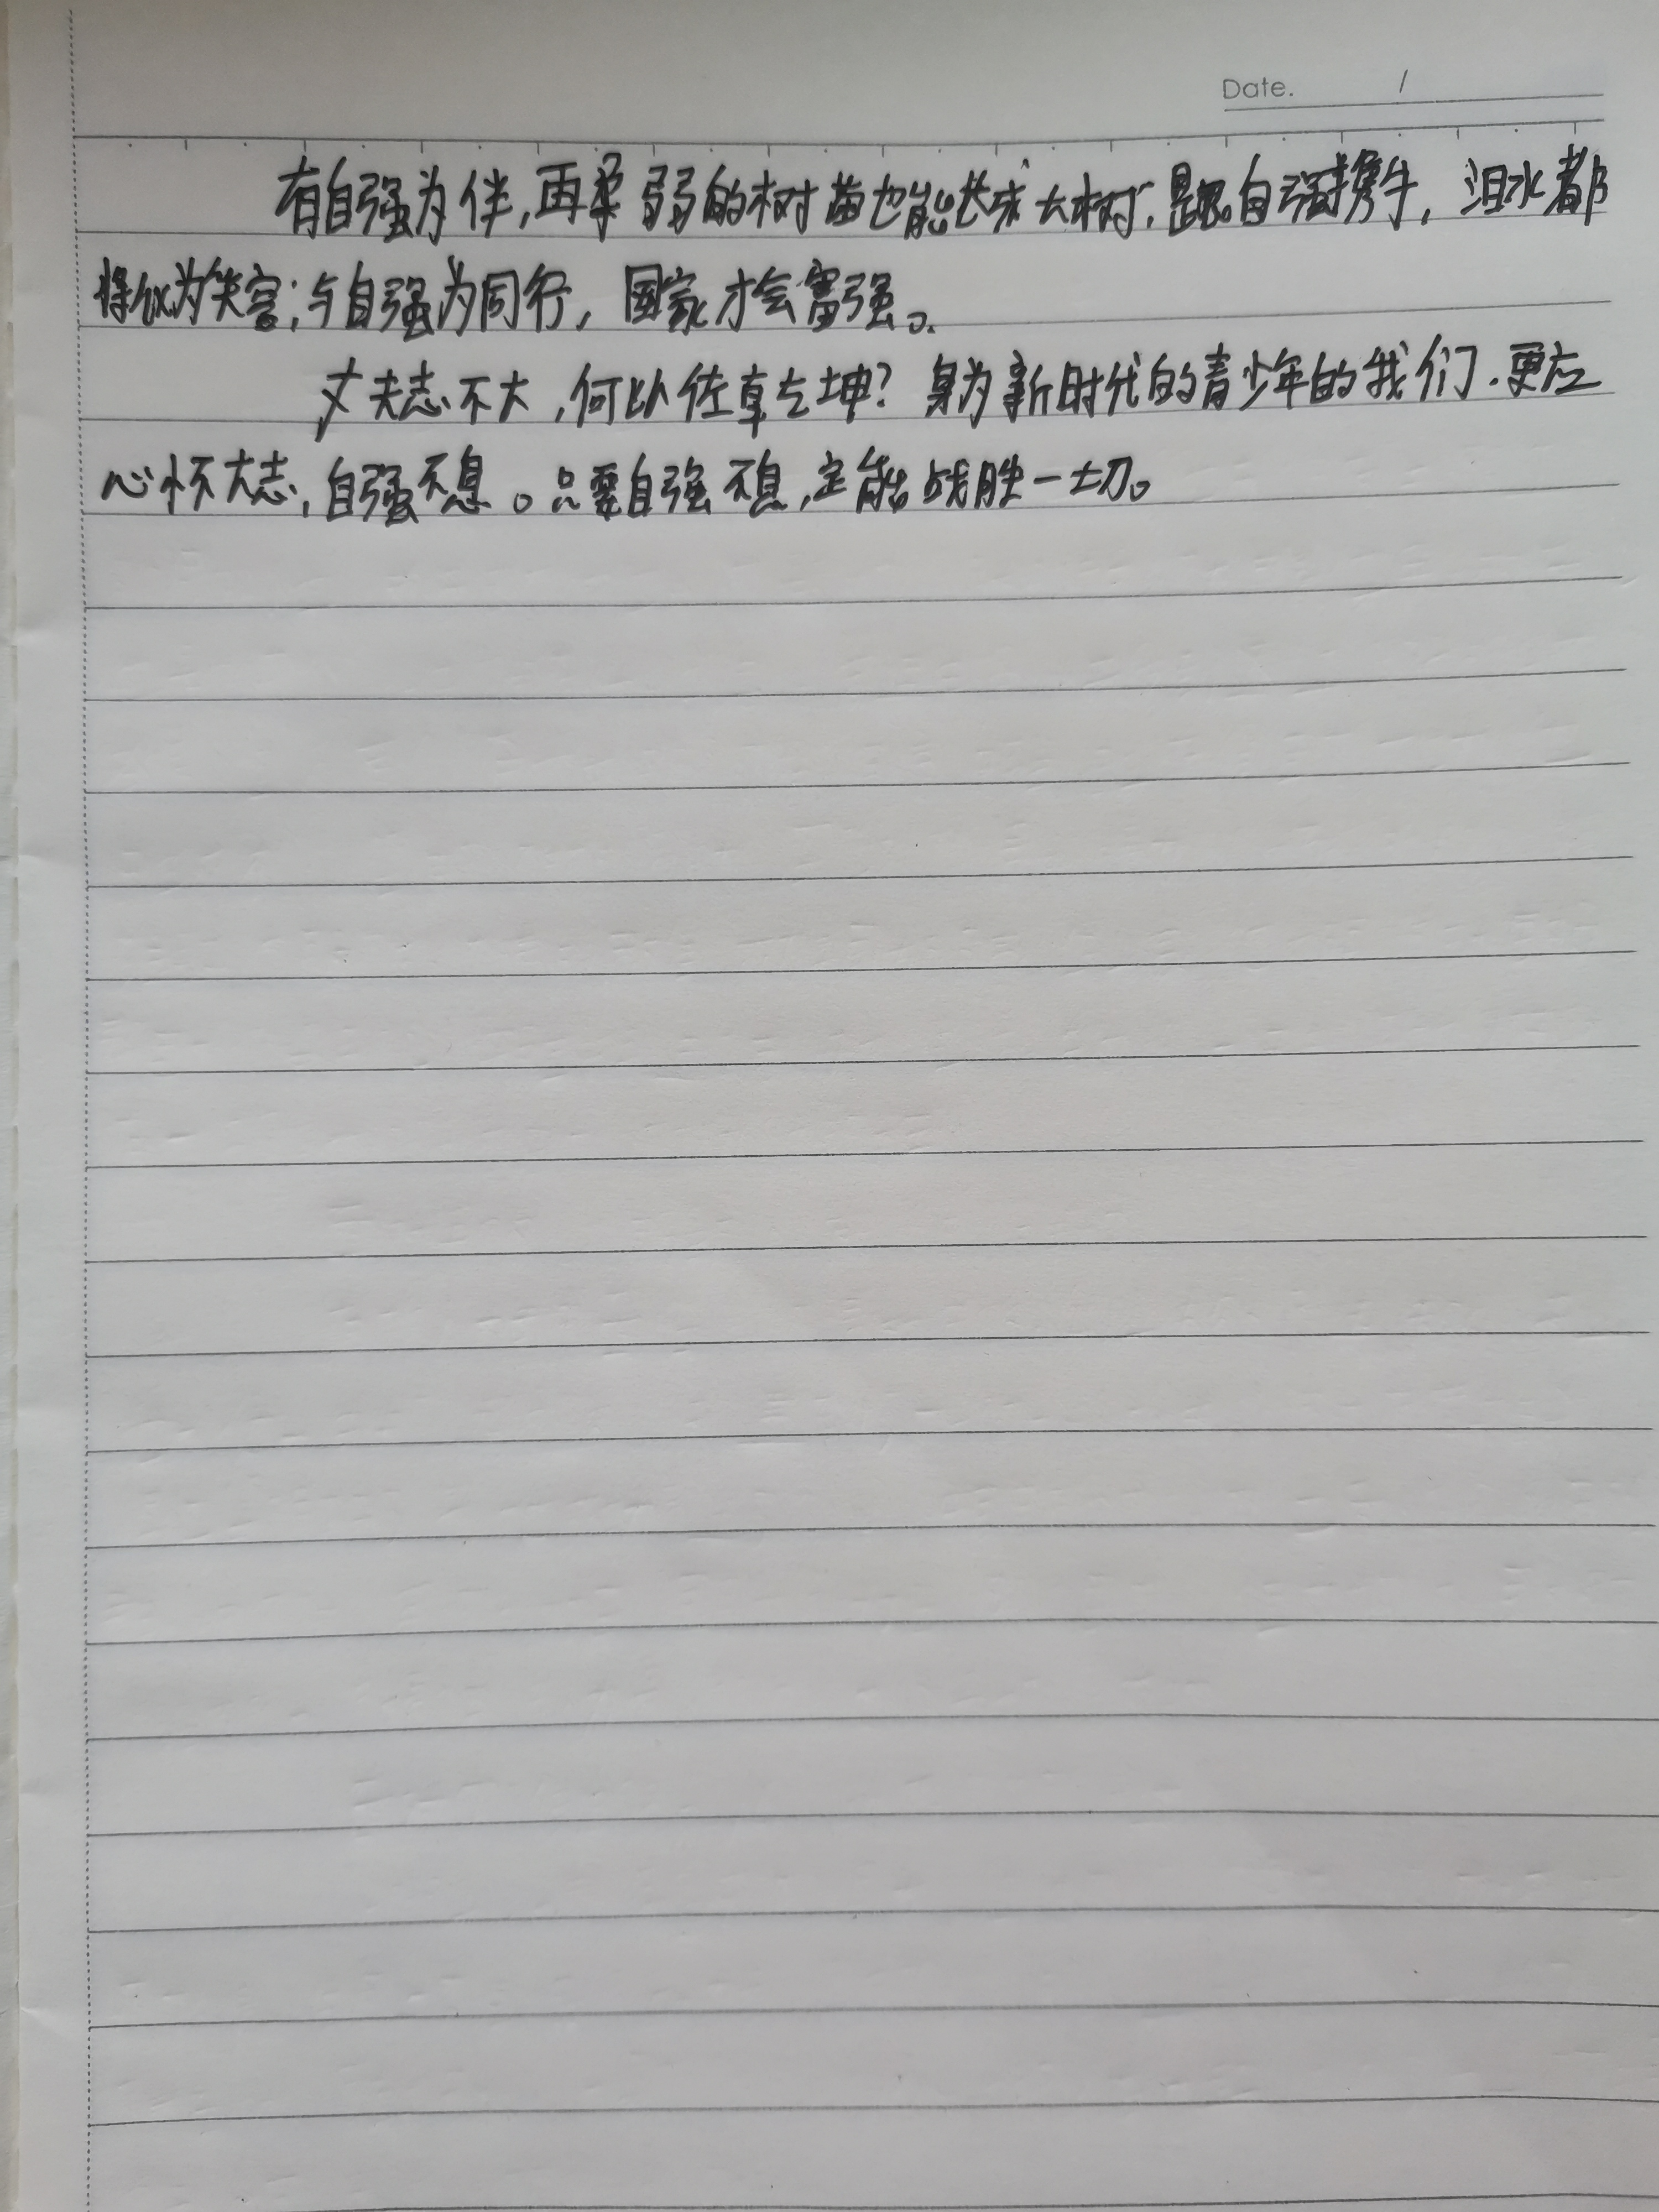 Date. /
有自强为伴,再柔弱的树苗也能长成大树,跟自强携手,泪水都
将化为笑容;与自强为同行,国家才会富强。
丈夫志不大,何以佐乾坤?身为新时代的青少年的我们.更应
心怀大志,自强不息。只要自强不息,定能战胜一切。